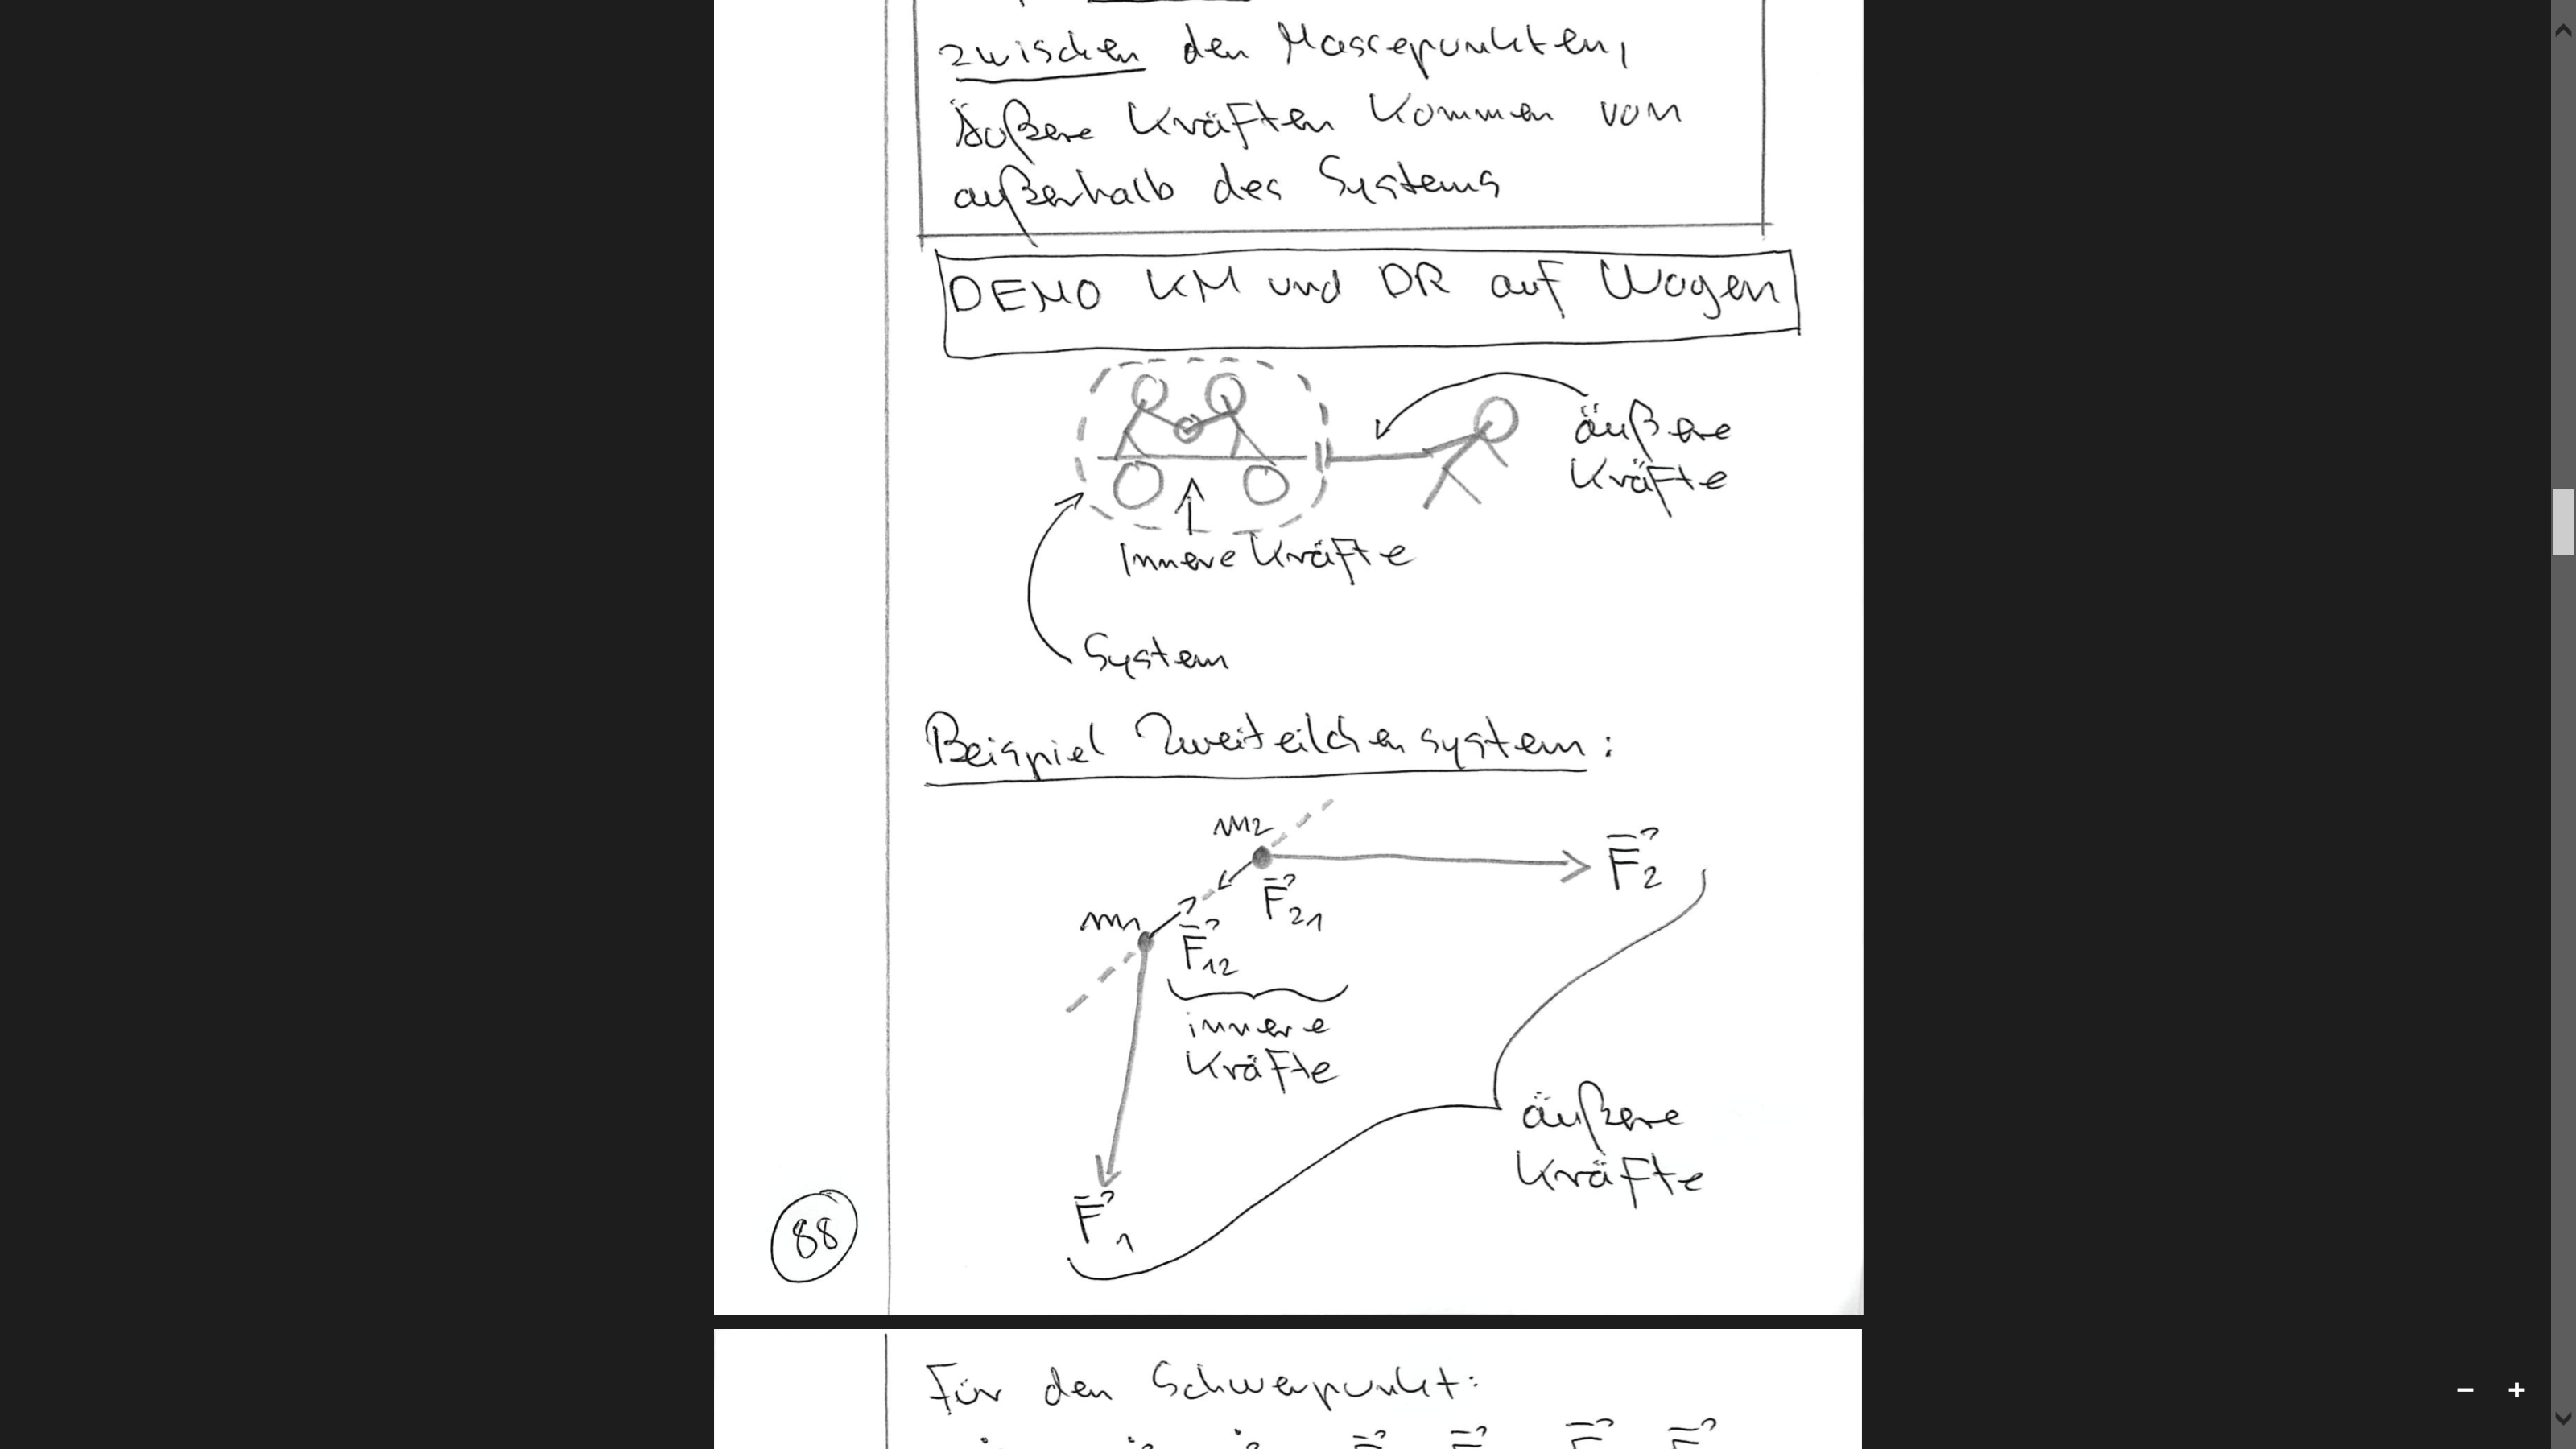 zwischen den Massepunkten,
Äußere Kräften kommen von
außerhalb des Systems
DEMO KM und DR auf Wagen
äußere
Kräfte
Innere Kräfte
System
Beispiel Zweiteilchensystem:
m₂
F⃗₂
F⃗₂₁
m₁
F⃗₁₂
innere
Kräfte
äußere
Kräfte
F⃗₁
88
Für den Schwerpunkt: